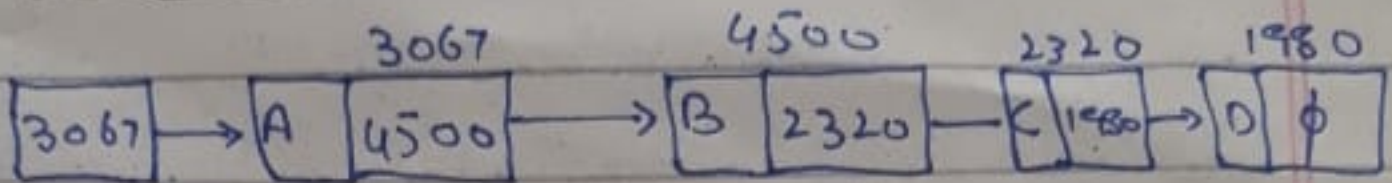 3067 4500 2320 1980
3067 A 4500 B 2320 C 1980 D ϕ